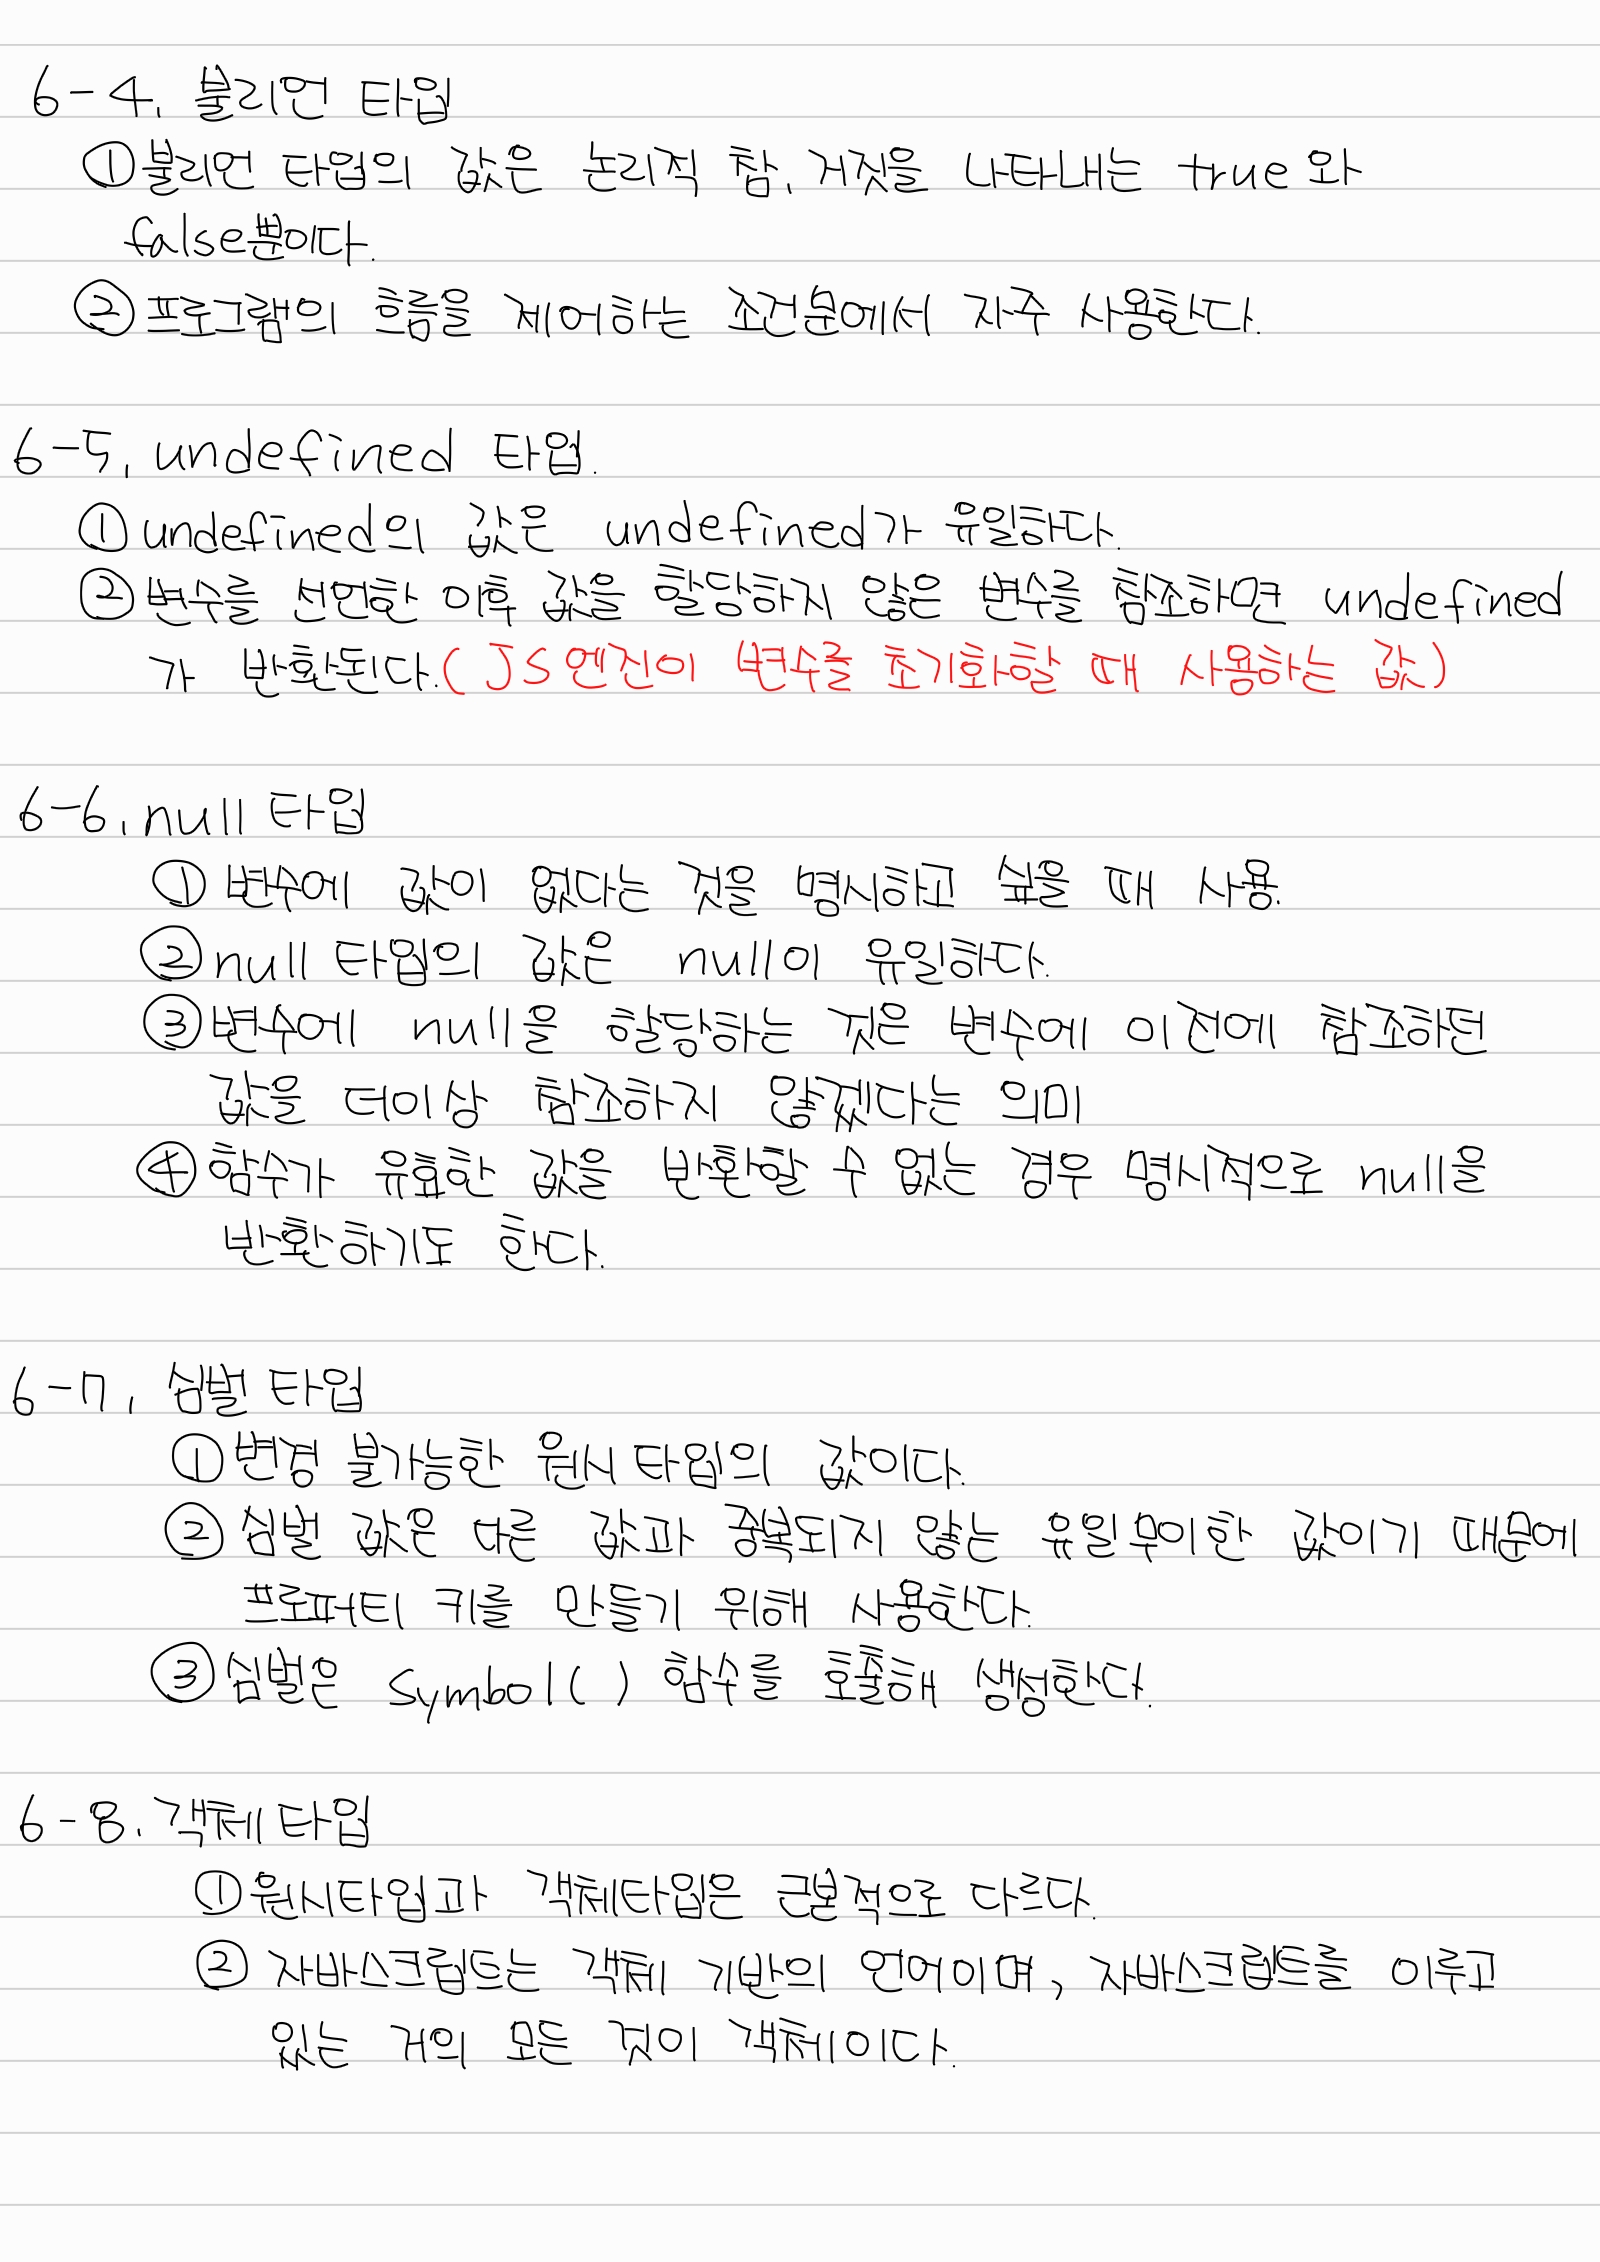 6-4. 불리언 타입
① 불리언 타입의 값은 논리적 참, 거짓을 나타내는 true와
false뿐이다.
② 프로그램의 흐름을 제어하는 조건문에서 자주 사용한다.
6-5. undefined 타입.
① undefined의 값은 undefined가 유일하다.
② 변수를 선언한 이후 값을 할당하지 않은 변수를 참조하면 undefined
가 반환된다.(JS엔진이 변수를 초기화할 때 사용하는 값)
6-6. null 타입
① 변수에 값이 없다는 것을 명시하고 싶을 때 사용.
② null 타입의 값은 null이 유일하다.
③ 변수에 null을 할당하는 것은 변수에 이전에 참조하던
값을 더이상 참조하지 않겠다는 의미
④ 함수가 유효한 값을 반환할 수 없는 경우 명시적으로 null을
반환하기도 한다.
6-7. 심벌 타입
① 변경 불가능한 원시 타입의 값이다.
② 심벌 값은 다른 값과 중복되지 않는 유일무이한 값이기 때문에
프로퍼티 키를 만들기 위해 사용한다.
③ 심벌은 Symbol() 함수를 호출해 생성한다.
6-8. 객체 타입
① 원시타입과 객체타입은 근본적으로 다르다.
② 자바스크립트는 객체 기반의 언어이며, 자바스크립트를 이루고
있는 거의 모든 것이 객체이다.